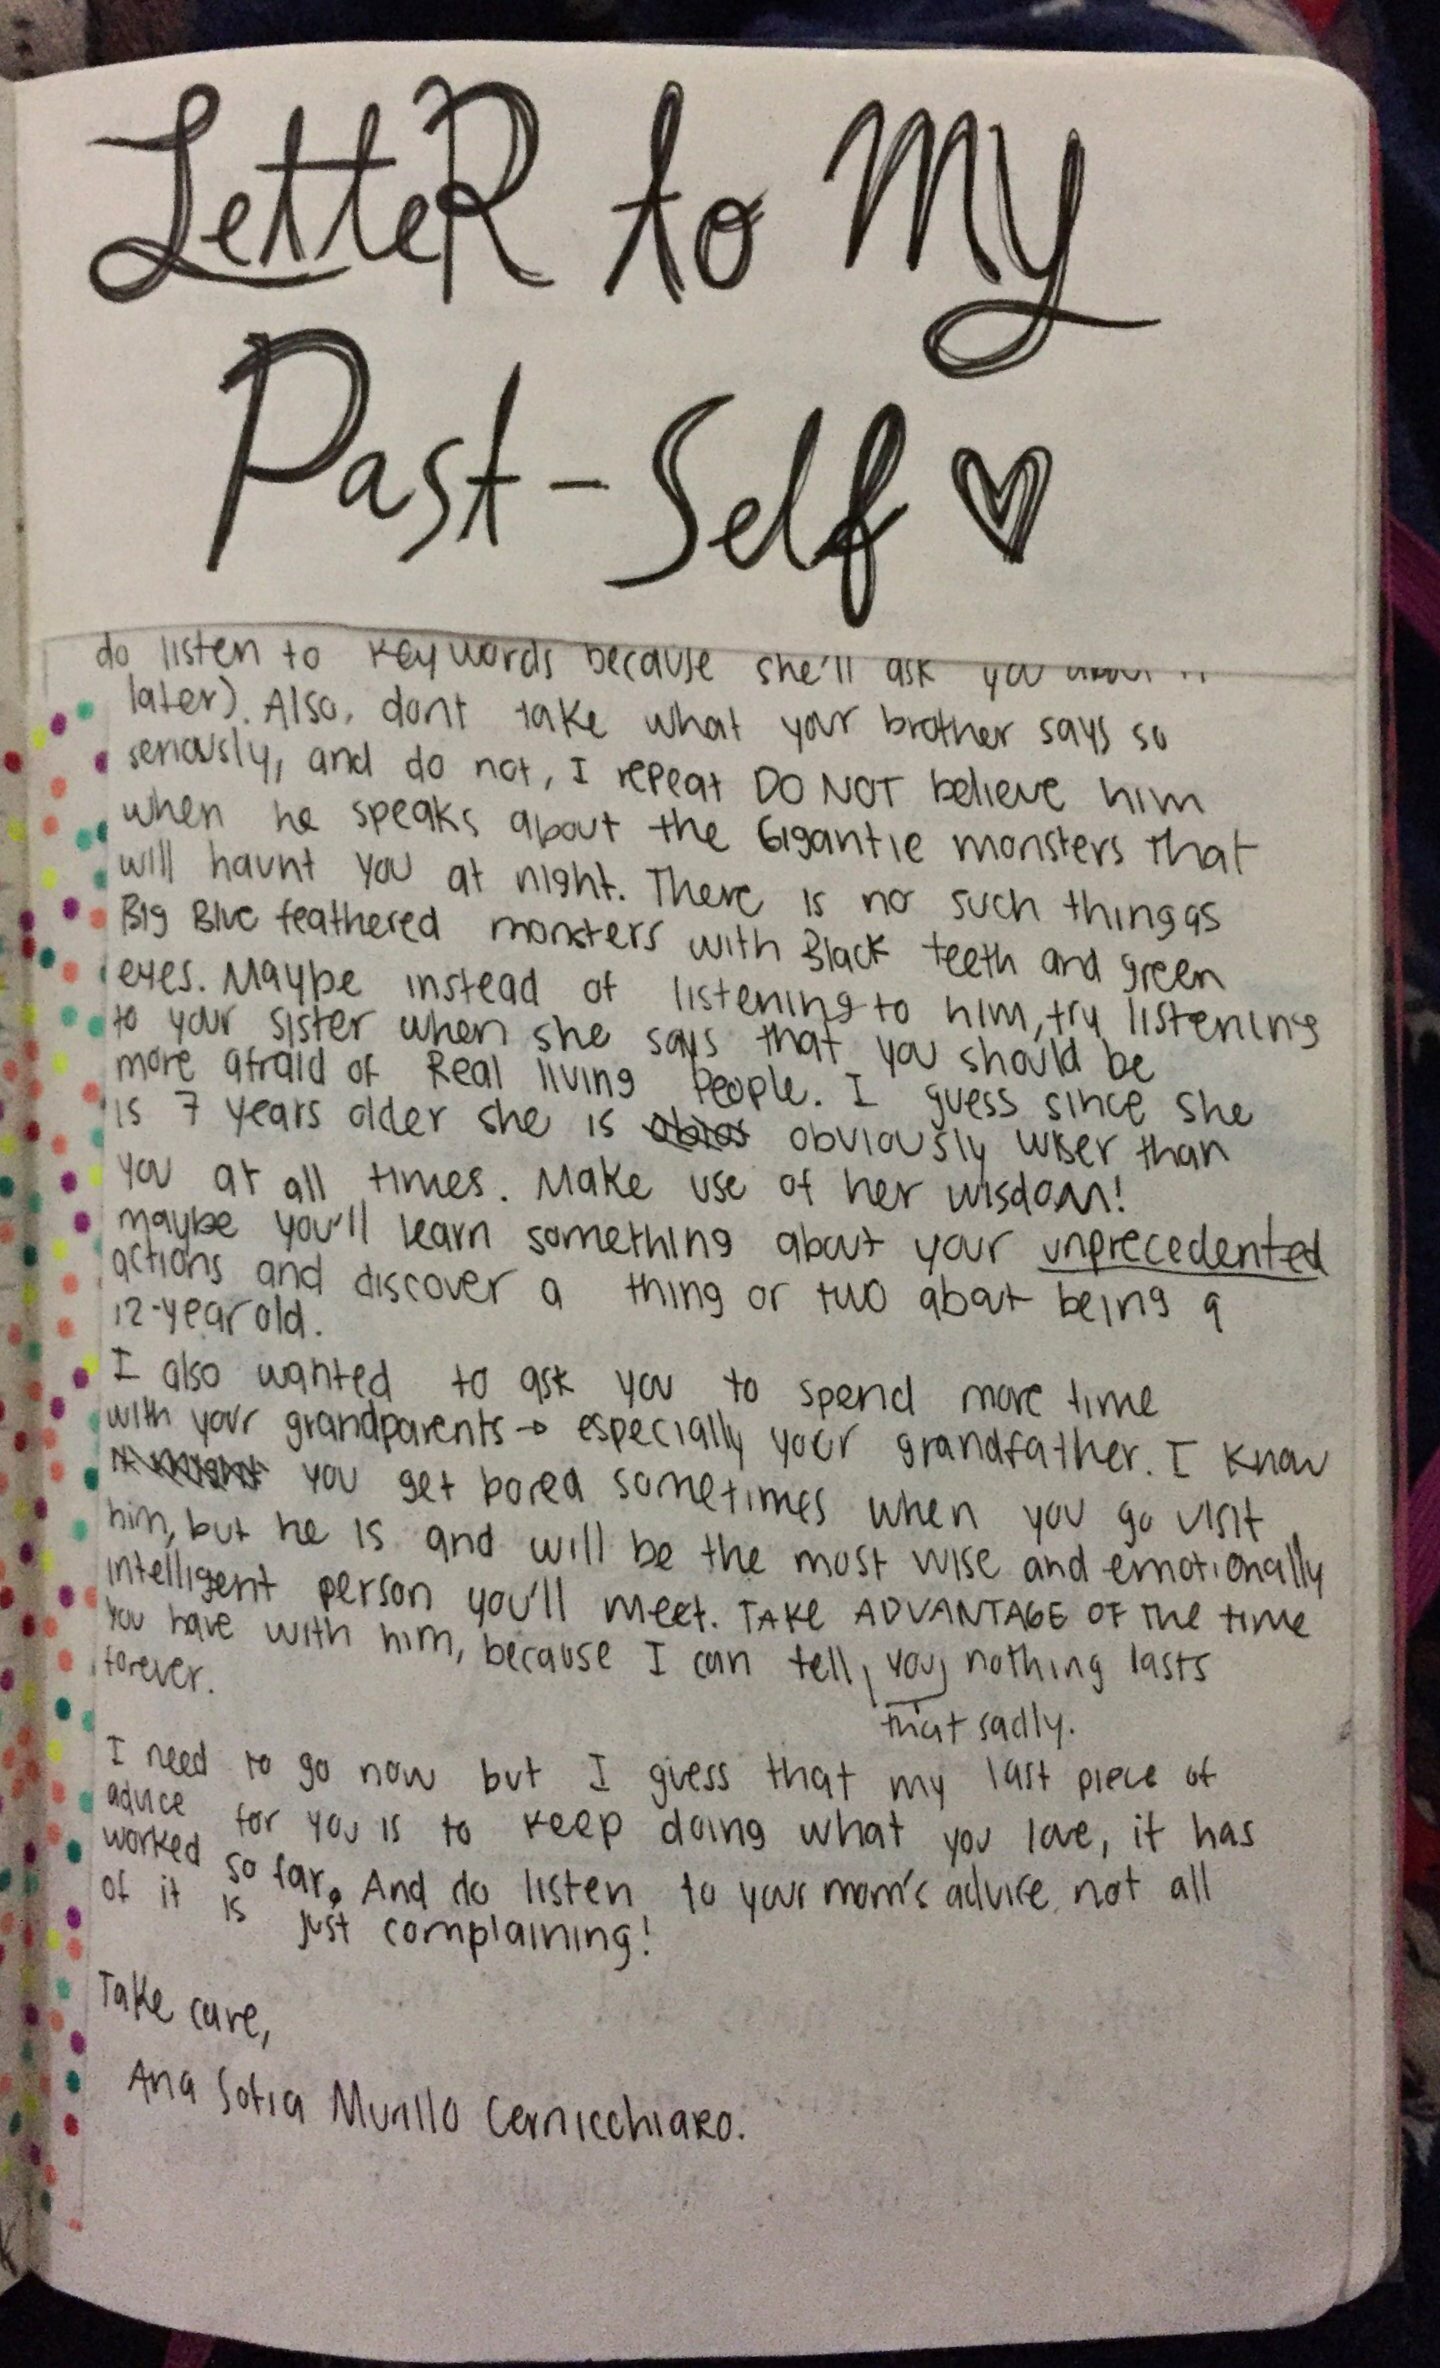 LetteR to My
Past-Self
do listen to keywords because she'll ask you about it
later). Also, dont take what your brother says so
seriously, and do not, I repeat DO NOT believe him
when he speaks about the Gigantic monsters that
will haunt you at night. There is no such thing as
Big Blue feathered monsters with Black teeth and green
eyes. Maybe instead of listening to him, try listening
to your sister when she says that you should be
more afraid of Real living People. I guess since she
is 7 years older she is obviously wiser than
you at all times. Make use of her wisdom!
maybe you'll learn something about your unprecedented
actions and discover a thing or two about being a
12-year old.
I also wanted to ask you to spend more time
with your grandparents → especially your grandfather. I know
you get bored sometimes when you go visit
him, but he is and will be the most wise and emotionally
intelligent person you'll meet. TAKE ADVANTAGE OF The time
you have with him, because I can tell you nothing lasts
forever.
that sadly.
I need to go now but I guess that my last piece of
advice for you is to keep doing what you love, it has
worked so far. And do listen to your mom's advice, not all
of it is just complaining!
Take care,
Ana Sofia Murillo Cernicchiaro.